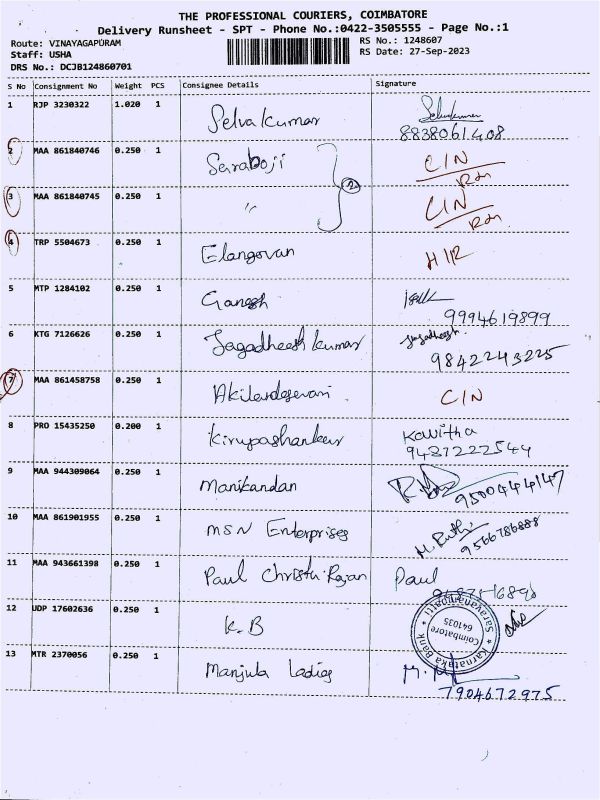 THE PROFESSIONAL COURIERS, COIMBATORE
Delivery Runsheet - SPT - Phone No.:0422-3505555 - Page No.:1
Route: VINAYAGAPURAM
Staff: USHA
DRS No.: DCJB124860701
RS No.: 1248607
RS Date: 27-Sep-2023
S No Consignment No Weight PCS Consignee Details Signature
1 RJP 3230322 1.020 1 Selvakumar
8838061408
2 MAA 861840746 0.250 1 Saraboji C/N
3 MAA 861840745 0.250 1 " C/N
2
4 TRP 5504673 0.250 1 Elangovan
5 MTP 1284102 0.250 1 Ganesh
9994619899
6 KTG 7126626 0.250 1 Jagadheesh kumar Jagadheesh
9842243225
7 MAA 861458758 0.250 1 C/N
8 PRO 15435250 0.200 1 Kirupashankar Kavitha
9487222544
9 MAA 944309064 0.250 1 Manikandan
9500444147
10 MAA 861901955 0.250 1 MSN Enterprises M. Ruthi
9566786888
11 MAA 943661398 0.250 1 Paul Christu Rajan Paul
12 UDP 17602636 0.250 1 K.B
Karnataka Bank
Saravanampatti
Coimbatore
641035
13 MTR 2370056 0.250 1 Manjula Ladies
7904672975